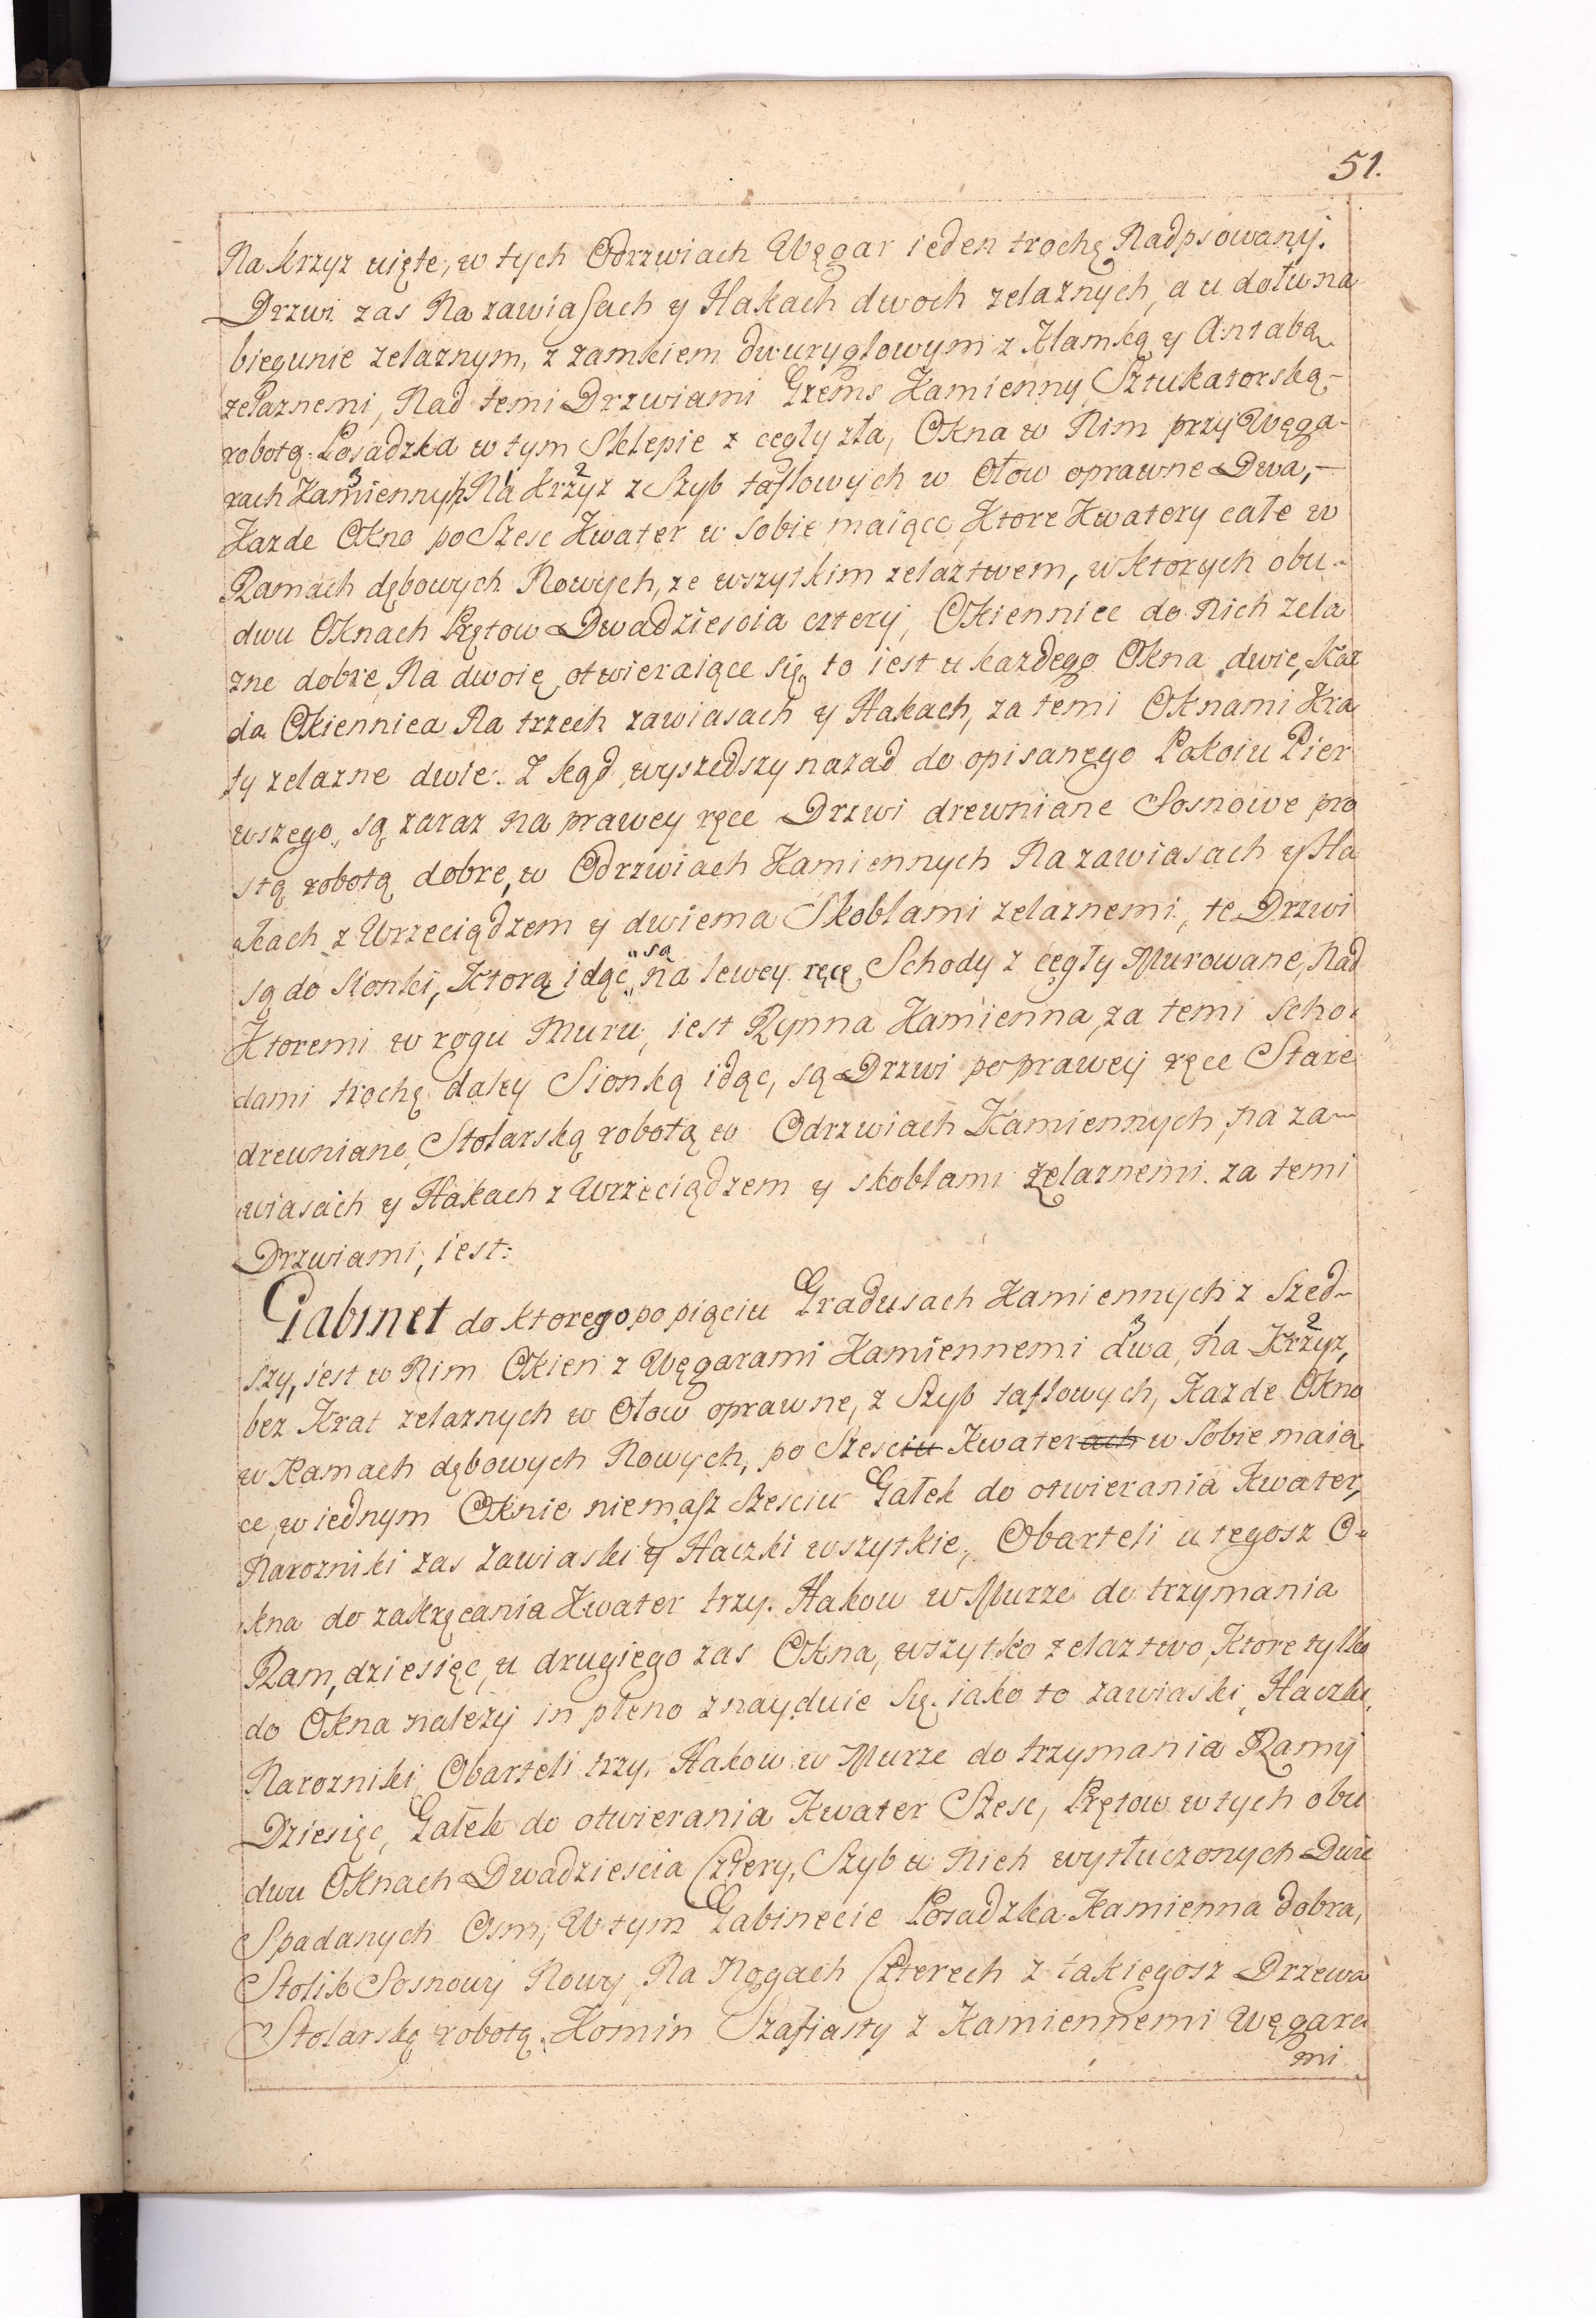 51.
Na Krzyz uięte, w tych Odrzwiach Węgar ieden trochę Nadpsowany.
Drzwi zas Na zawiasach y Hakach dwoch zelaznych, a u dołu na
biegunie zelaznym, z zamkiem dwuryglowym z Klamką y Antabą
zelaznemi, Nad temi Drzwiami Gzems Kamienny Sztukatorską
robotą. Posadzka w tym Sklepie z cegły zła, Okna w Nim przy Węga-
rach Kamiennych Na Krzyz z Szyb taflowych w Ołow oprawne Dwa,
3 1 2
Kazde Okno po Szesc Kwater w sobie maiące, Ktore Kwatery całe w
Ramach dębowych Nowych, ze wszytkim zelaztwem, w ktorych obu-
dwu Oknach Prętow Dwadziescia cztery, Okiennice do Nich zela
zne dobre, Na dwoie otwieraiące się, to iest u kazdego Okna dwie, Kaz
da Okiennica Na trzech zawiasach y Hakach, za temi Oknami Kra
ty zelazne dwie. Z kąd wyszedszy nazad do opisanego Pokoiu Pier
wszego, są zaraz na prawey ręce Drzwi drewniane Sosnowe pro
stą robotą dobre, w Odrzwiach Kamiennych Na zawiasach y Ha
kach z Wrzeciądzem y dwiema Skoblami zelaznemi, te Drzwi
"są
są do Sionki, Ktorą idąc " na lewey ręce Schody z cegły Murowane, Nad
Ktoremi w rogu Muru, iest Rynna Kamienna, za temi Scho-
dami trochę daley Sionką idąc, są Drzwi po prawey ręce Stare
drewniane, Stolarską robotą w Odrzwiach Kamiennych, na za-
wiasach y Hakach z Wrzeciądzem y skoblami zelaznemi. za temi
Drzwiami, iest:
Gabinet do ktorego po pięciu Gradusach Kamiennych z Szed-
szy, iest w Nim Okien z Węgarami Kamiennemi dwa, na Krzyz,
3 1 2
bez Krat zelaznych w Ołow oprawne, z Szyb taflowych, Kazde Okno
w Ramach dębowych Nowych, po Szesciu Kwaterach w sobie maią
ce, w iednym Oknie niemasz Szesciu Gałek do otwierania Kwater,
Narozniki zas Zawiaski y Haczki wszytkie, Obarteli u tegosz O-
kna do zakręcania Kwater trzy. Hakow w Murze do trzymania
Ram, dziesięc, u drugiego zas Okna, wszytko zelaztwo, Ktore tylko
do Okna należy in pleno znayduie się, iako to zawiaski, Haczki,
Narozniki, Obarteli trzy, Hakow w Murze do trzymania Ramy
Dziesięc, Gałek do otwierania Kwater Szesc, Prętow w tych obu
dwu Oknach Dwadziescia Cztery, Szyb w Nich wytłuczonych Dwie
Spadanych Osm, W tym Gabinecie Posadzka Kamienna dobra,
Stolik Sosnowy Nowy, Na Nogach Czterech z takiegosz Drzewa
Stolarską robotą. Komin Szafiasty z Kamiennemi Węgara
mi